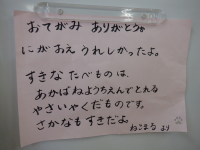 おてがみ ありがとう。
にがおえ うれしかったよ。
すきな たべものは、
あかばねようちえんでとれる
やさいやくだものです。
さかなもすきだよ。
ねこまる より